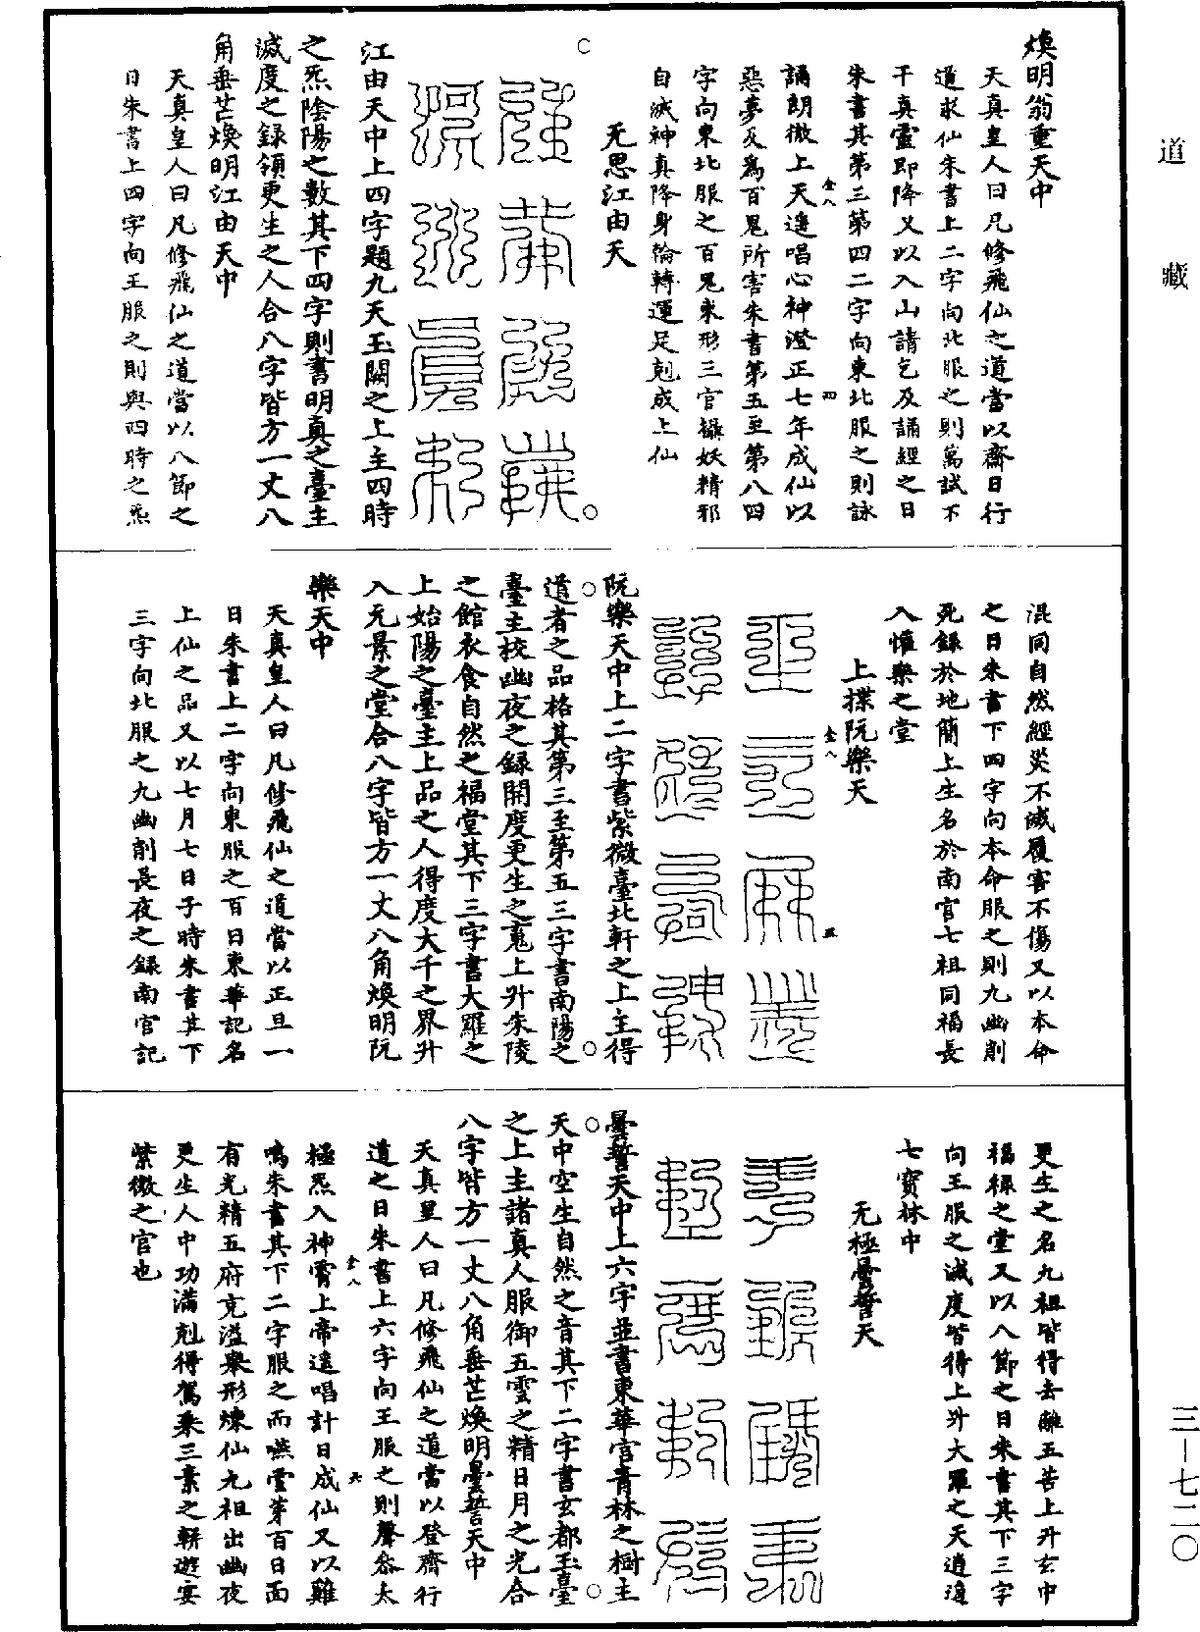 道藏
煥明翁重天中
天真皇人曰凡修飛仙之道當以齋日行
道求仙朱書上二字向北服之則萬試不
干真靈即降又以入山請乞及誦經之日
朱書其第三第四二字向東北服之則詠
誦朗徹上天遥唱心神澄正七年成仙以
惡夢及爲百鬼所害朱書第五至第八四
字向東北服之百鬼束形三官攝妖精邪
自滅神真降身輪轉運足剋成上仙
无思江由天
江由天中上四字題九天玉闕之上主四時
之炁陰陽之數其下四字則書明真之臺主
滅度之録領更生之人合八字皆方一丈八
角垂芒煥明江由天中
天真皇人曰凡修飛仙之道當以八節之
日朱書上四字向王服之則與四時之炁
混同自然經災不滅履害不傷又以本命
之日朱書下四字向本命服之則九幽削
死録於地簡上生名於南宫七祖同福長
入懽樂之堂
上揲阮樂天
阮樂天中上二字書紫微臺北軒之上主得
道者之品格其第三至第五三字書南陽之
臺主校幽夜之録開度更生之䰟上升朱陵
之館衣食自然之福堂其下三字書大羅之
上始陽之臺主上品之人得度大千之界升
入元景之堂合八字皆方一丈八角煥明阮
樂天中
天真皇人曰凡修飛仙之道當以正旦一
日朱書上二字向東服之百日東華記名
上仙之品又以七月七日子時朱書其下
三字向北服之九幽削長夜之録南宫記
更生之名九祖皆得去離五苦上升玄中
福禄之堂又以八節之日朱書其下三字
向王服之滅度皆得上升大羅之天逍遥
七寶林中
无極曇誓天
曇誓天中上六字並書東華宫青林之樹主
天中空生自然之音其下二字書玄都玉臺
之上主諸真人服御五雲之精日月之光合
八字皆方一丈八角垂芒煥明曇誓天中
天真皇人曰凡修飛仙之道當以登齋行
道之日朱書上六字向王服之則聲參太
極炁入神霄上帝遥唱計日成仙又以雞
鳴朱書其下二字服之而嚥雲芽百日面
有光精五府充溢舉形煉仙九祖出幽夜
更生人中功滿剋得駕乘三素之軿遊宴
紫微之宫也
三—七二〇